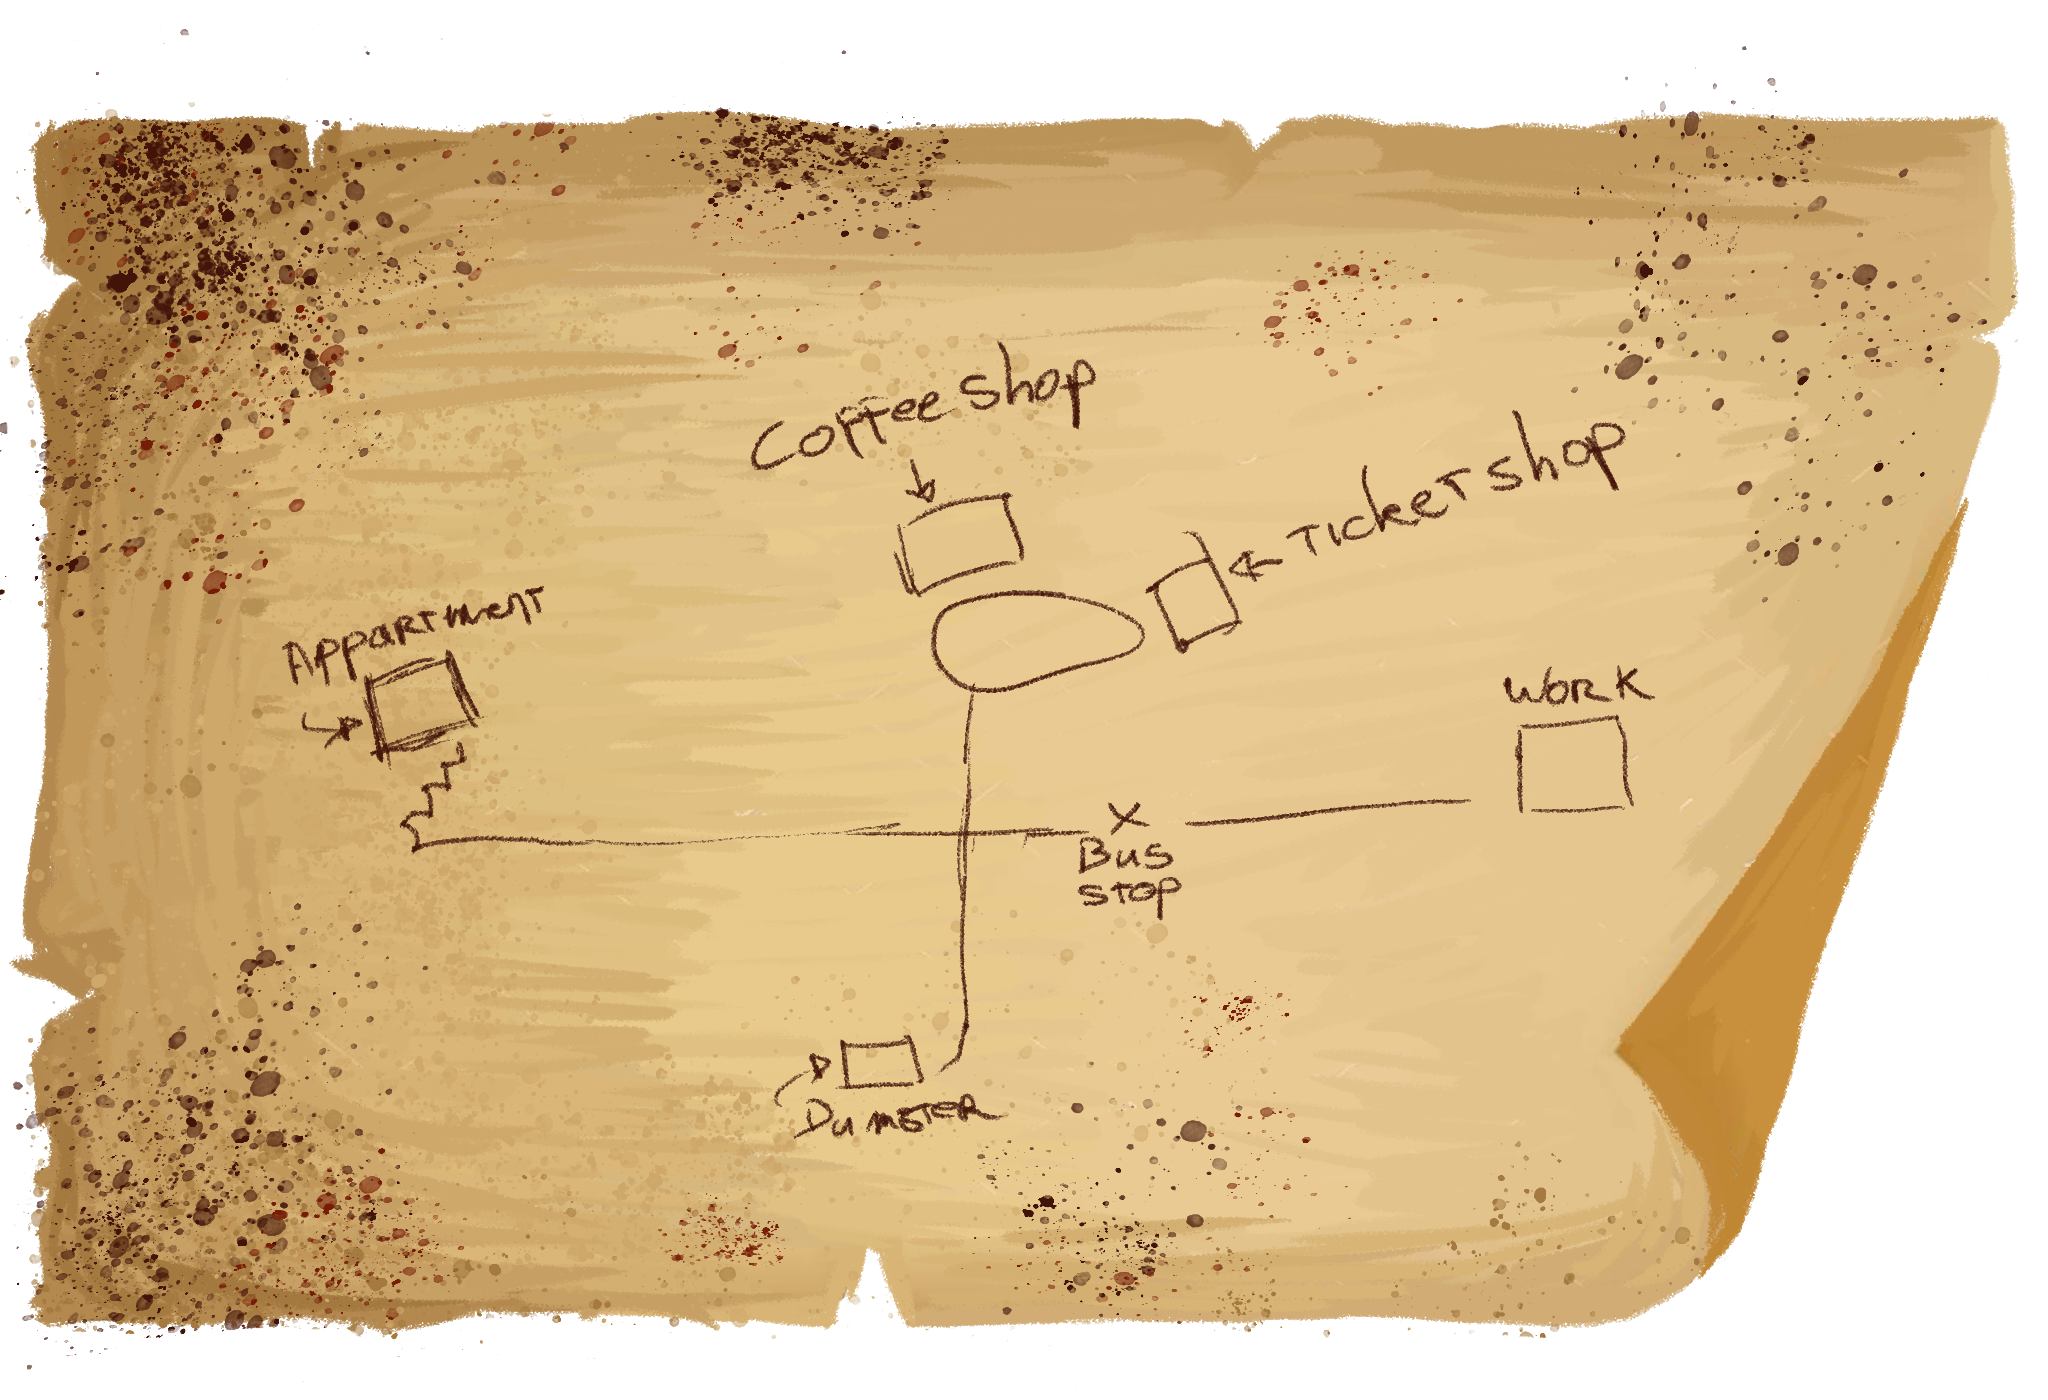 Coffee shop
Ticket shop
Appartment
Work
Bus
stop
Dumster